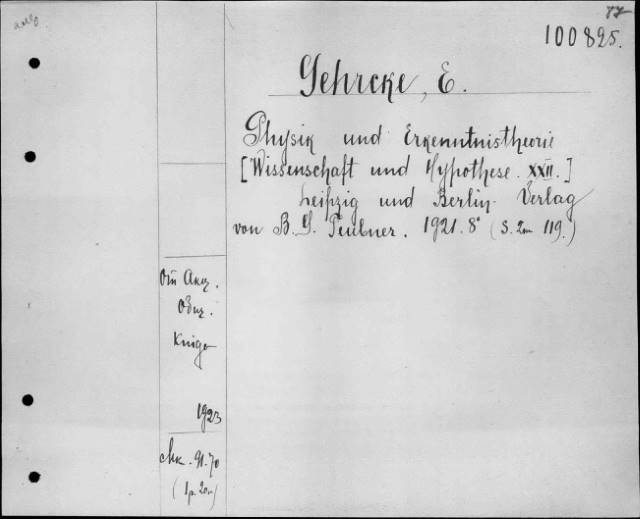 77
100825.
Gehrcke, E.
Physik und Erkenntnistheorie
[Wissenschaft und Hypothese. XXII.]
Leipzig und Berlin. Verlag
von B. G. Teubner. 1921. 8° (S. 2m 119.)
От Акц.
Общ.
Книга
1923
4 р. 70
(1р. 20м)